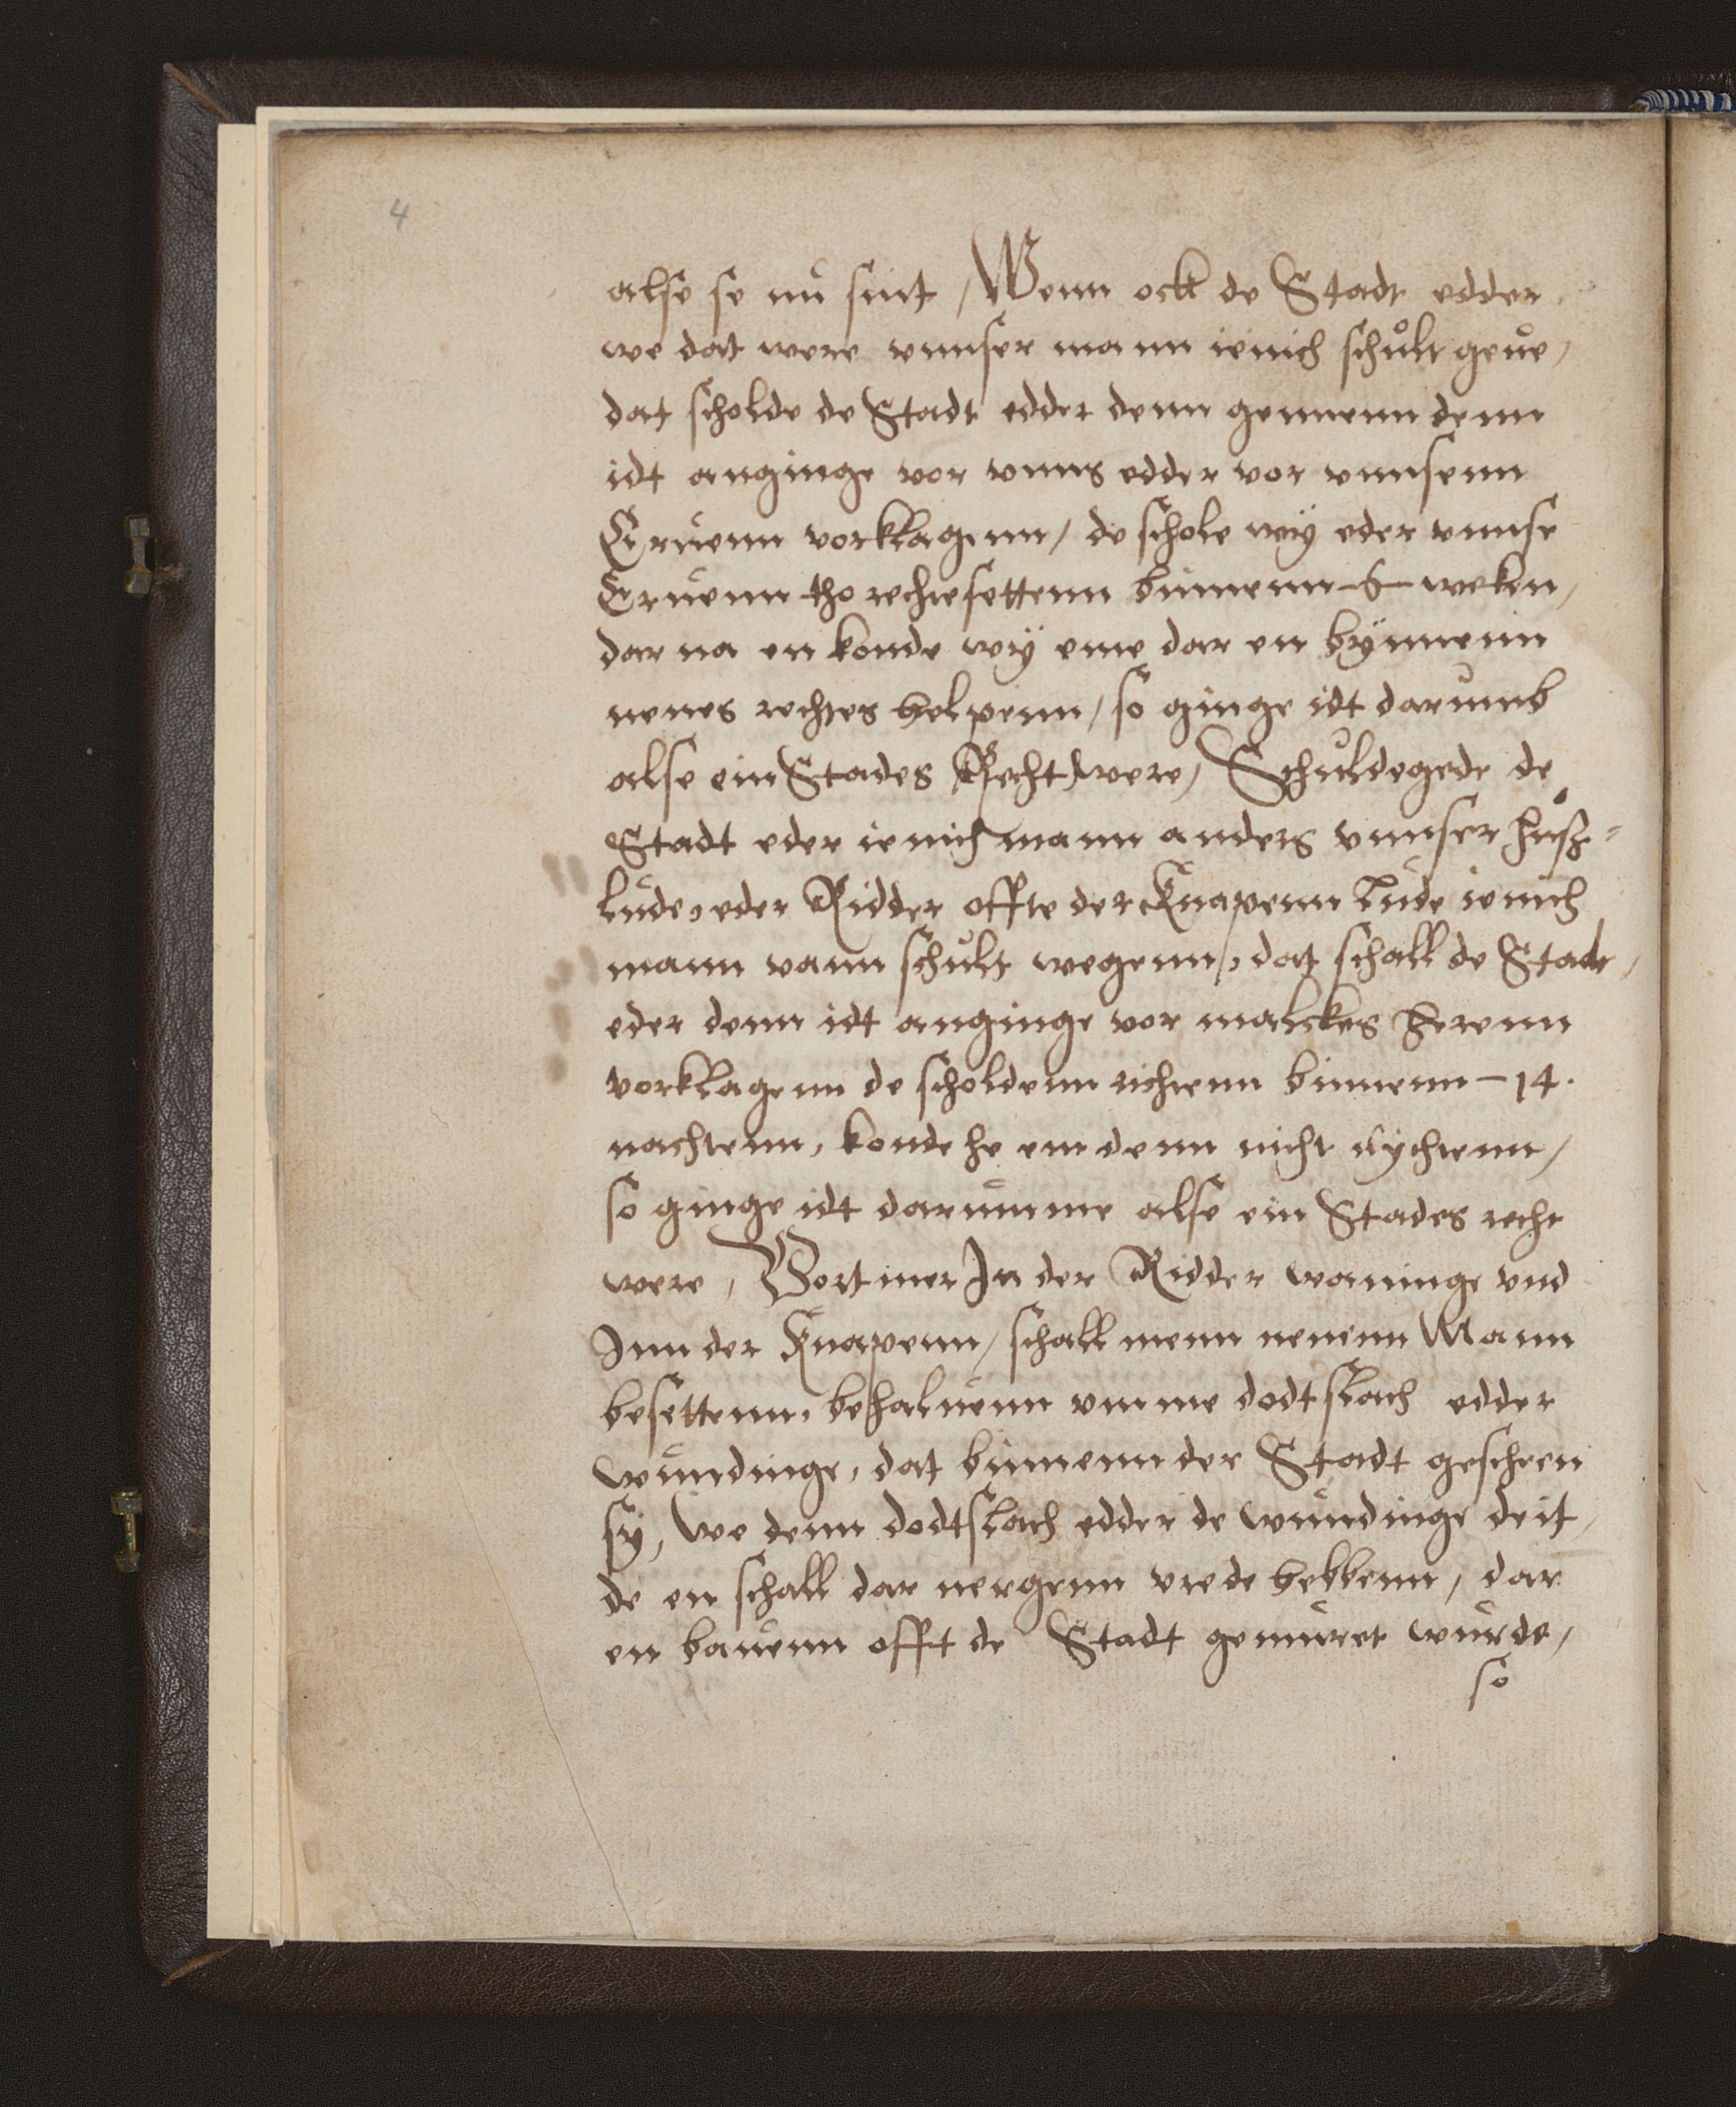 4
alse se nu sint / Wenn ock de Stadt edder
we dat were unnser mann ienich schult geue,
dat scholde de Stadt edder denn gennenn denn
idt anginge vor unns edder vor unnsenn
Eruenn vorklagenn / de schole wÿ eder unnse
Eruenn tho rechtesettenn binnenn - 6 - weken,
dar na en konde wÿ eme dar en bÿnnenn
nenes rechtes helpenn / so ginge idt darumb
alse ein Stades Recht were, Schuldegede de
Stadt eder ienich mann anders unnser huß=
lude, eder Ridder offte der Knapenn lude ienich
mann vann schult wegenn, dat schall de Stadt,
eder denn idt anginge vor malckes herenn
vorklagenn de scholdenn richtenn binnenn - 14.
nachtenn, konde he em denn nicht rÿchtenn,
so ginge idt darumme alse ein Stades recht
were, Vortmer In der Ridder waninge vnd
Inn der Knapenn / schall menn nenenn Mann
besettenn, behaluenn vmme dodtslach edder
wundinge, dat binnenn der Stadt gescheen
sÿ, we denn dodtslach edder de wundinge deit,
de en schall dar nergenn vrede hebbenn, dar
en bauenn offt de Stadt gemuret wurde,
so